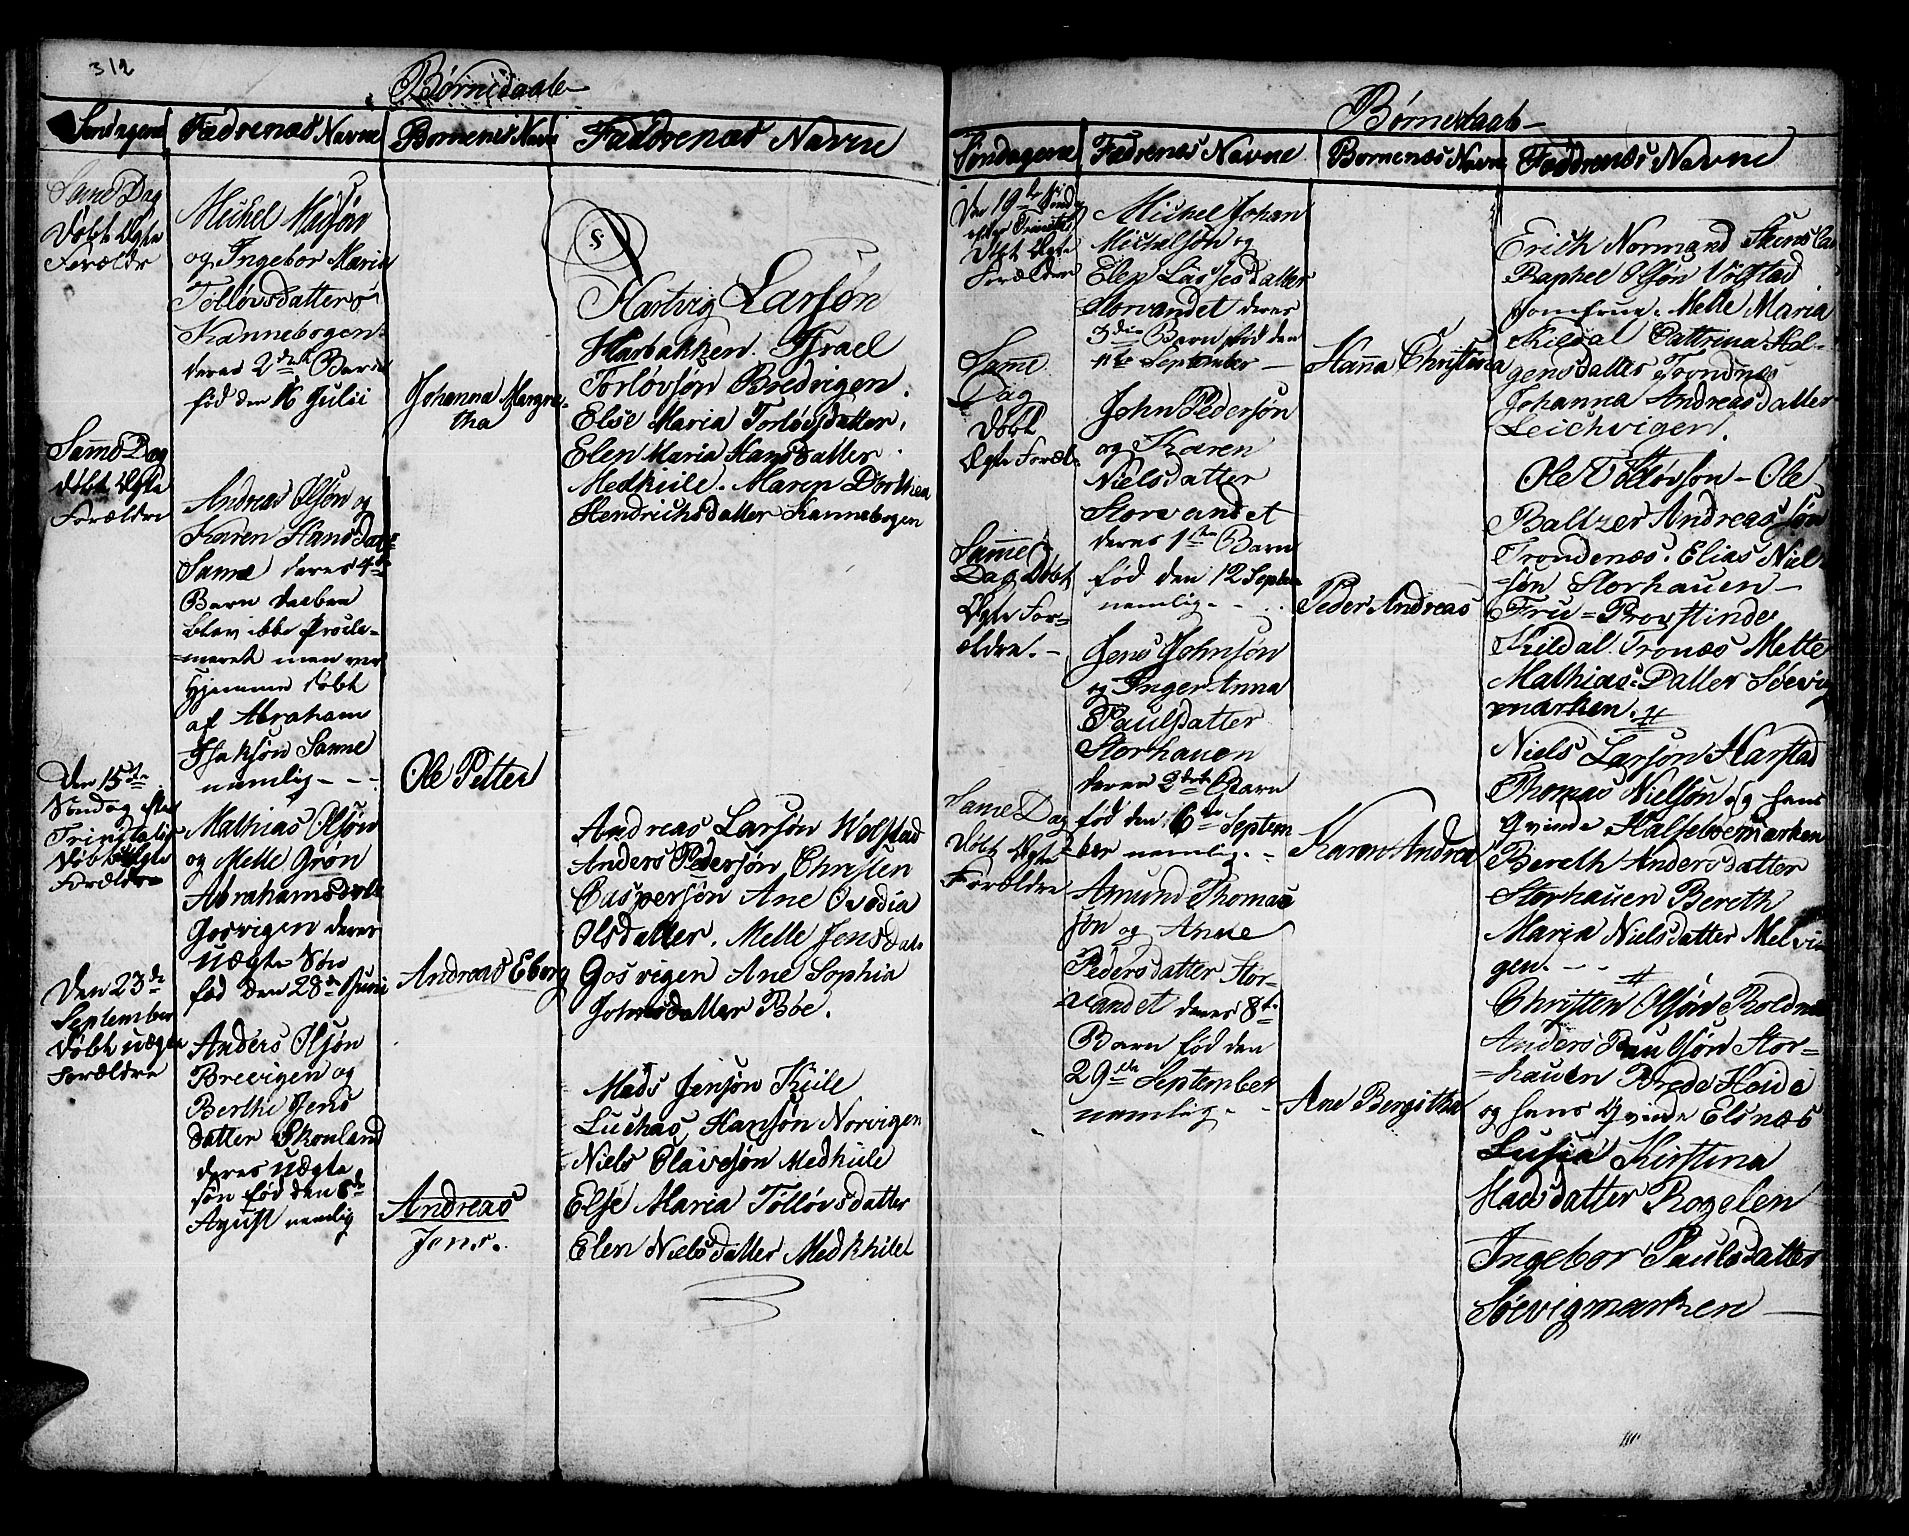 312
Børnedaab
Søndagene
Fædrenes Navne
Børnenes Navne
Faddrenes Navne
Same Dag
døbt Ægte
Forældre
Michel
og Ingebor Maria
Tolløvsdatter
Kannebogen
deres 2den Barn
fød den 16 Julii
Johanna Margre-
tha
Hartvig Larsøn
Harbakken. Israel
Torløvsøn Bredvigen.
Else Maria Torløvsdatter.
Elen Maria Hansdatter.
Medkiile. Maren Dorthea
Hendrichsdatter Kannebogen
Same Dag
døbt Ægte
Forældre
Andreas Olsøn og
Karen Hansdatter
Same deres 4de
Barn
blev ikke
men var
Hjemme døbt
af Abraham
Isaksøn Same
nemlig - - -
Ole Petter
Den 15de
Søndag efter
Trinitatis
døbt Uægte
Forældre
Mathias Olsøn
og Mette Grøn
Abrahamsdatter
Gosvigen deres
Uægte Søn
fød den 28de Junii
Andreas Eberg
Andreas Larsøn Wolstad
Anders Pedersøn Christen
Caspersøn Ane Ovedia
Olsdatter. Mette Jensdat
Gosvigen Ane Sophia
Johnsdatter Bøe.
Den 23de
September
døbt uægte
Forældre
Anders Olsøn
Brevigen og
Berthe Jens
datter Skonland
deres uægte
søn fød den 8de
August nemlig
Andreas
Jens.
Mads Jensøn Kiile
Luchas Hansøn Norvigen
Niels Olavesøn Medkiile
Else Maria Tolløvsdatter
Elen Nielsdatter Medkhilel
Børnedaab
Søndagene
Fædrenes Navne
Børnenes Navne
Faddrenes Navne
Den 19de Sønd
efter Trinitatis
døbt Ægte
Forældre
Michel Johan
Michelsøn og
Elen Lassesdatter
Storvandet deres
3die Barn fød den
11te September -
Hanna Christina
Erich Normand
Raphel Olsøn Volstad
Jomfrue. Mette Maria
Kildal Cattrina Hel-
gensdatter Trondnes
Johanna Andreasdatter
Leichvigen.
Same
Dag
døbt
Ægte Foræl-
John Pedersøn
og Karen
Nielsdatter
Storvandet
deres 1ste Barn
fød den 12 Septem
nemlig - - .
Peder Andreas
Ole Tolløvsøn - Ole
Baltzer Andreassøn
Trondenæs. Elias Niel-
=søn Storhauen -
Frue = Provstinde
Kildal. Tronæs Mette
Mathias=Datter Søevig
marken.
Same
Dag Døbt
Ægte For-
ældre. -
Jens Johnsøn
og Inger Anna
Paulsdatter
Storhauen
deres 2det Barn
fød den 6te Septem
ber nemlig. -
Karen Andrea
Niels Larsøn Harstad
Thomas Nielsøn og hans
Qvinde Halsebøemarken
Bereth Andersdatter
Storhauen Bereth
Maria Nielsdatter Melvi
gen. - -
Same Dag
døbt Ægte
Forældre
Amund Thomas
søn og Anne
Pedersdatter Stor-
vandet deres 8de
Barn fød den
29de September
nemlig - -
Ane Bergitha
Christen Olsøn Roldnæs
Anders Paulsøn Stor=
=hauen Brede Heide
og hans Qvinde Elsnæs
Lusia Kirstina
Madsdatter Rogelen
Ingebor Paulsdatter
Søevigmarken -